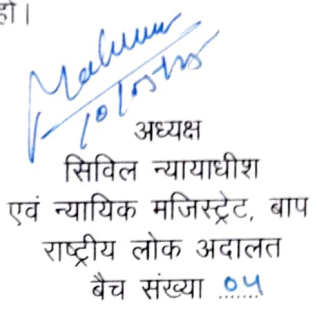 हो।
10/05/25
अध्यक्ष
सिविल न्यायाधीश
एवं न्यायिक मजिस्ट्रेट, बाप
राष्ट्रीय लोक अदालत
बैच संख्या 04